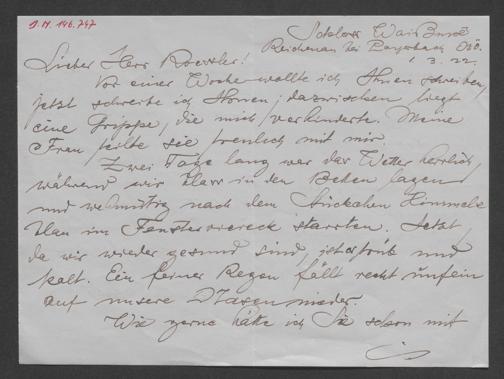 J.N. 146.747
Schloss
Reichenau bei Payerbach N.Ö.
1. 3. 22.
Lieber Herr Roessler!
Vor einer Woche wollte ich Ihnen schreiben,
jetzt schreibe ich Ihnen; dazwischen liegt
eine Grippe, die mich verhinderte. Meine
Frau teilte sie freulich mit mir.
Zwei Tage lang war das Wetter herrlich,
während wir in den Betten lagen
und wehmütig nach dem Stückchen Himmels
blau im Fensterviereck starrten. Jetzt,
da wir wieder gesund sind, ist es trüb und
kalt. Ein feiner Regen fällt recht unfein
auf unsere Nasen nieder.
Wie gerne hätte ich Sie schon mit